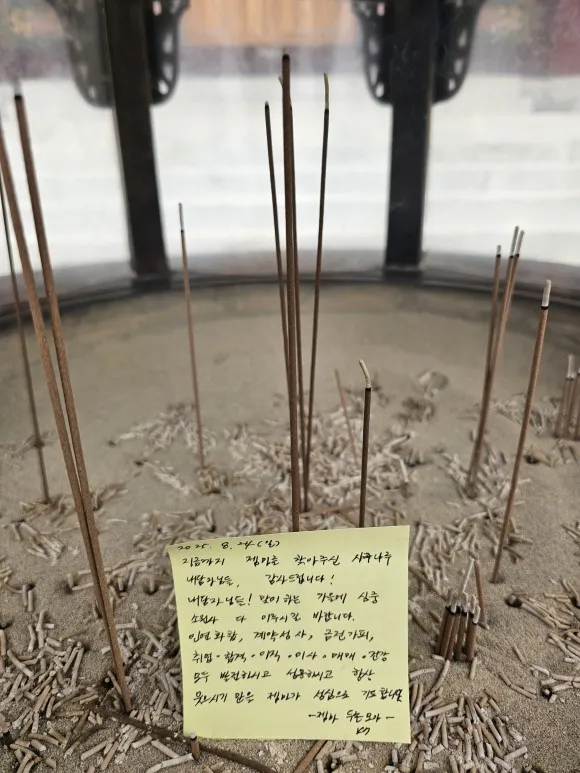 2025. 8. 24 (일)
지금까지 젬마를 찾아주신 사주나루
내담자님들, 감사드립니다!
내담자님들! 맘이 하는 가운데 심중
소원사 다 이루시길 바랍니다.
인연화합, 계약성사, 금전가피,
취업·합격·이직·이사·매매·건강
모두 발전하시고 성불하시고 항상
웃으시기 만을 젬마가 성심으로 기도합니다
-젬마 두손모아-